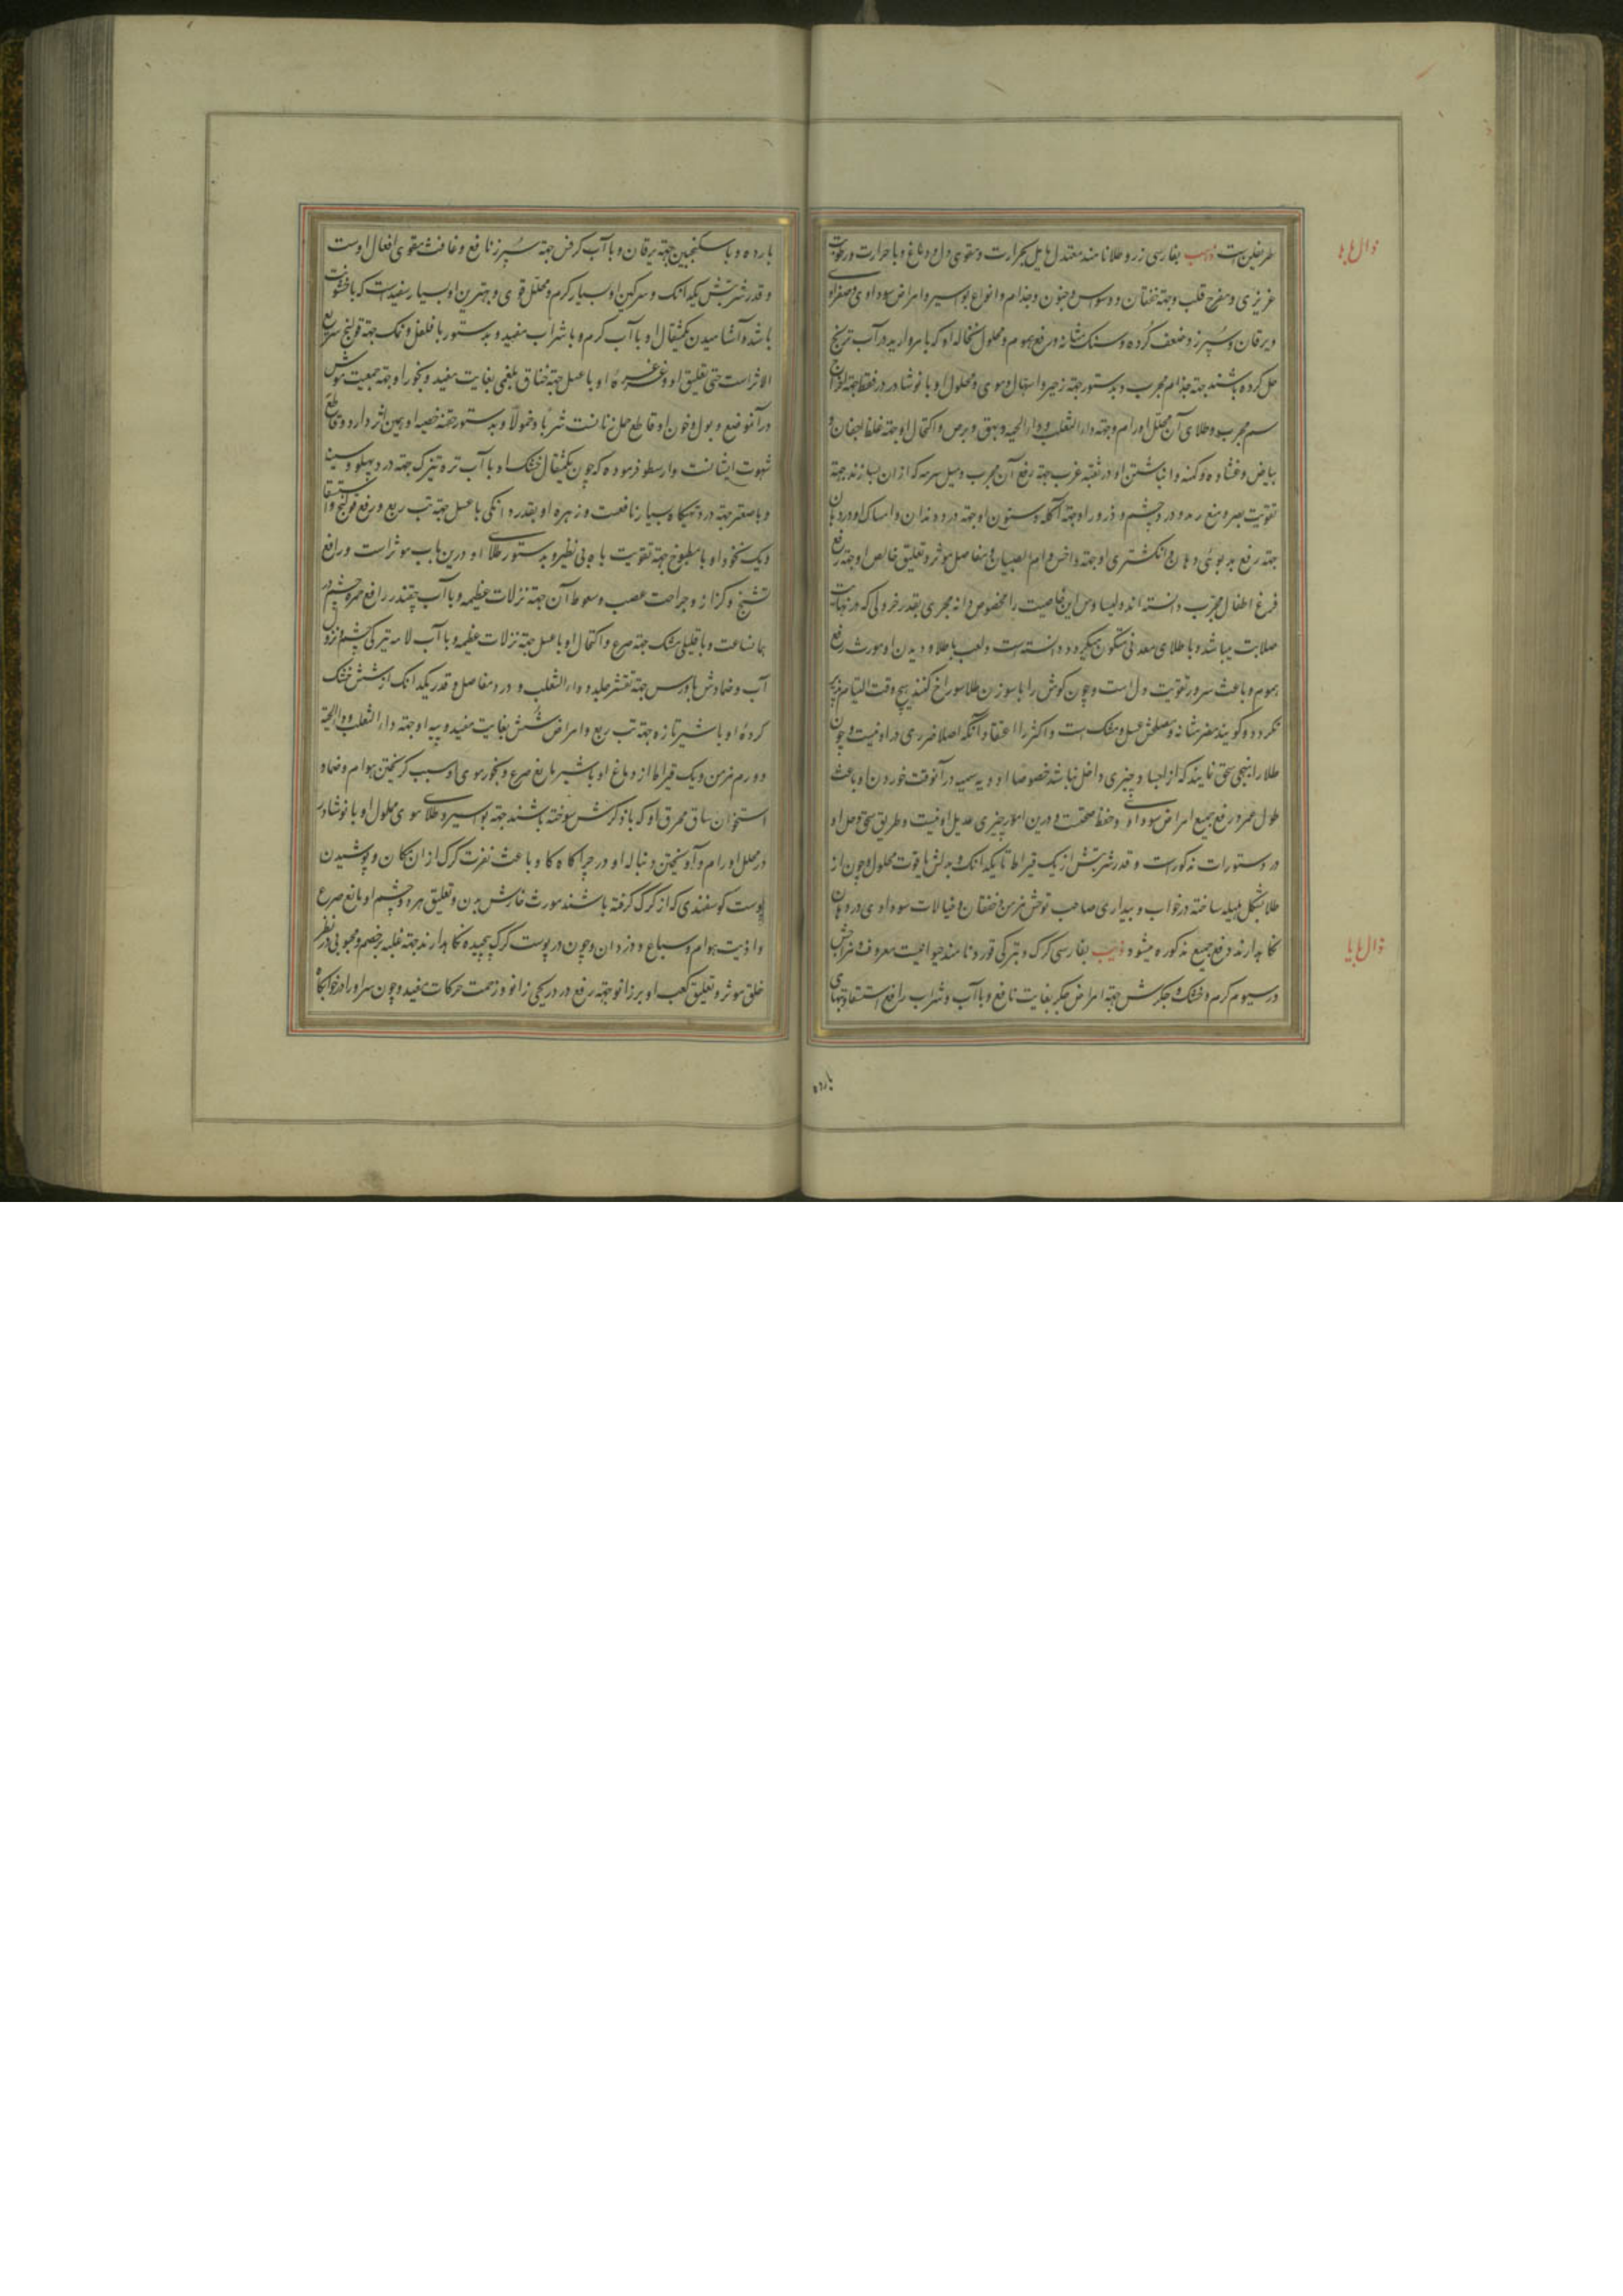 ذال با ها
طرخلین است ذهب بفارسی زر و طلا نامند معتدل مایل بحرارت و مقوی دل و دماغ و با حرارت و رطوبت
غریزی و مفرح قلب و جهة خفقان و وسواس و جنون و جذام و انواع بواسیر و امراض سوداوی و صفراوی
و یرقان و سپرز و ضعف کرده و سنک مثانه و رفع سموم و محلول سحاله او که با مروارید در آب ترنج
حل کرده باشند جهة جذام مجرب و بدستور جهة زحیر و اسهال دموی و محلول او با نوشادر در فقط جهة
سم مجرب و طلای آن محلل اورام و جهة داء الثعلب و داء الحیه و بهق و برص و اکتحال او جهة غلظ اجفان و
بیاض و غشاوه و کمنه و انباشتن او در ثقبه غرب جهة رفع آن مجرب و میل سرمه که از ان بسازند جهة
تقویت بصر و منع رمد و درد چشم و ذرور او جهة آکله و سنون او جهة درد دندان و امساک او در دهان
جهة رفع بدبوئی دهان و انکشتری او جهة داخس و ام الصبیان و مفاصل موثر و تعلیق خالص او جهة رفع
فزع اطفال مجرب دانسته اند و این خاصیت را مخصوص دانه مجری بقدر خردلی که در نهایت
صلابت میباشد و با طلای معدنی متکون میکردد دانسته است و لعب با طلا و دیدن او مورث رفع
هموم و باعث سرور و تقویت دل است و چون کوش را با سوزن طلا سوراخ کنند هیچ وقت التیام پذیر
نکردد و کویند مضر مثانه و مصلحش عسل و مشک است و اکثر را اعتقاد آنکه اصلا ضرری در او نیست و چون
طلا را بنهجی سحق نمایند که از اجساد چیزی داخل نباشد خصوصا ادویه سمیه در آنوقت خوردن او باعث
طول عمر و رفع جمیع امراض سوداوی و حفظ صحت و درین امور چیزی عدیل او نیست و طریق سحق و حل او
در دستورات مذکور است و قدر شربتش از یک قیراط تا یکدانک و بدلش یاقوت محلول و چون از
طلا بشکل هلیله ساخته در خواب و بیداری صاحب توحش مزمن و خفقان و خیالات سوداوی در دهان
نکاهدارند رفع جمیع مذکوره میشود ذئب بفارسی کرک و بترکی قورد نامند حیوانیست معروف مزاجش
ذال با یا
در سیوم کرم و خشک و جکرش جهة امراض جکر بغایت نافع و با آب و شراب رافع استسقا و تبهای
بارده
بارده و با سکنجبین جهة یرقان و با آب کرفس جهة سپرز نافع و غافث مقوی افعال اوست
و قدر شربتش یکدانک و سرکین او بسیار کرم و محلل قوی و بهترین او بسیار سفیدست که با خشونت
باشد و آشامیدن یکمثقال او با آب کرم و با شراب مفید و بدستور با فلفل و نمک جهة قولنج سریع
الاثر است حتی تعلیق او و غرغره او با عسل جهة خناق بلغمی بغایت مفید و بخور او جهة جمعیت موش
در آنموضع و بول و خون او قاطع حمل زنانست شربا و حمولا و بدستور خصیه او همین اثر دارد و قاطع
شهوت ایشانست و ارسطو فرموده که چون یکمثقال خشک او با آب تره تیزک جهة درد پهلو و سینه
و با صعتر جهة درد تهیکاه بسیار نافعست و زهره او بقدر دانکی با عسل جهة تب ربع و رفع قولنج و استسقا
و یک نخود او با مطبوخ جهة تقویت باه بی نظیر و بدستور طلای او درین باب موثر است و رافع
تشنج و کزاز و جراحت عصب و سعوط آن جهة نزلات عظیمه و با آب چقندر رافع حمره چشم در
همانساعت و با قلیلی مشک جهة صرع و اکتحال او با عسل جهة نزلات عظیمه و با آب لامه تیرکی چشم و نزول
آب و ضمادش با ورس جهة تقشر جلد و داء الثعلب و درد مفاصل و قدر یکدانک از شش خشک
کرده او با شیر تازه جهة تب ربع و امراض شش بغایت مفید و پیه او جهة داء الثعلب و داء الحیة
و ورم مزمن و یک قیراط از دماغ او با شیر مانع صرع و بخور موی او سبب کریختن هوام و ضماد
استخوان ساق محرق او که با ذکرش سوخته باشند جهة بواسیر و طلای موی محلول او با نوشادر
در محلل اورام و آویختن دنباله او در چراکاه کاو باعث نفرت کرک از ان مکان و پوشیدن
پوست کوسفندی که از کرک کرفته باشند مورث خارش بدن و تعلیق زهره و چشم او مانع صرع
و اذیت هوام و سباع و دزدان و چون در پوست کرک پیچیده نکاهدارند جهة غلبه بر خصم و محبوبی در نظر
خلق موثر و تعلیق کعب او بر زانو جهة رفع درد کجی زانو و زحمت حرکات مفید و چون سر او را در خوابکاه